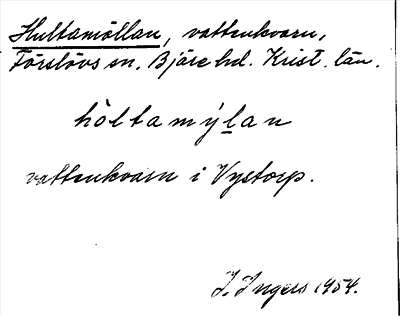 Hultamöllan, vattenkvarn,
Förslövs sn. Bjäre hd. Krist. län.
hòltamýlan
vattenkvarn i Vystorp.
I. Ingers 1954.